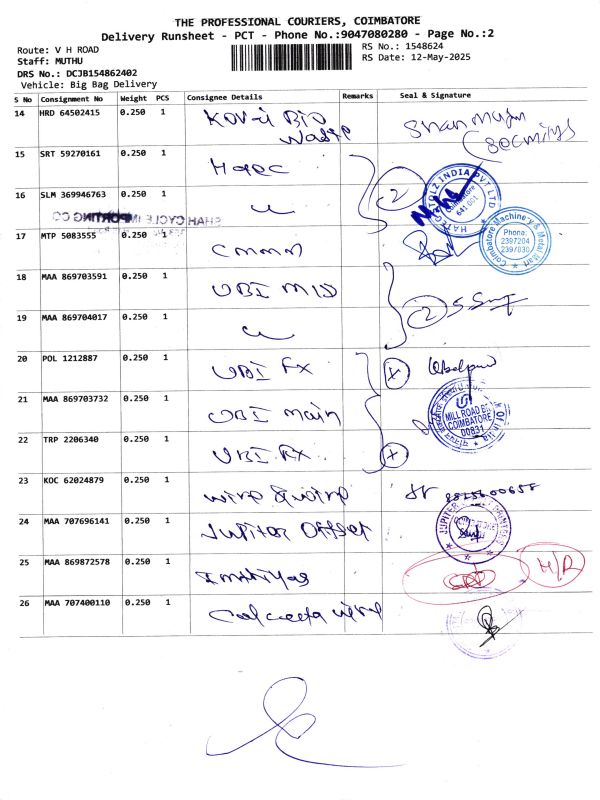 THE PROFESSIONAL COURIERS, COIMBATORE
Delivery Runsheet - PCT - Phone No.:9047080280 - Page No.:2
Route: V H ROAD
RS No.: 1548624
Staff: MUTHU
RS Date: 12-May-2025
DRS No.: DCJB154862402
Vehicle: Big Bag Delivery
S No Consignment No Weight PCS Consignee Details Remarks Seal & Signature
14 HRD 64502415 0.250 1 Kov-i Bio
Waste
15 SRT 59270161 0.250 1 Hapc
16 SLM 369946763 0.250 1 u 2
17 MTP 5083555 0.250 1 Cmmm
Coimbatore Machinery & Metal Mart
Phone:
2397204
2397830
18 MAA 869703591 0.250 1 UBI MID
19 MAA 869704017 0.250 1 u 2
20 POL 1212887 0.250 1 UBI FX
21 MAA 869703732 0.250 1 UBI main
MILL ROAD
COIMBATORE
22 TRP 2206340 0.250 1 UBI FX
23 KOC 62024879 0.250 1 wing & wing
24 MAA 707696141 0.250 1 Jupiter Offset
JUPITER
25 MAA 869872578 0.250 1 H/R
26 MAA 707400110 0.250 1